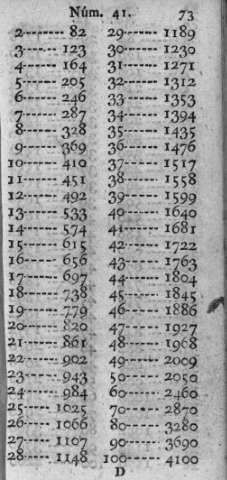 Núm. 41. 73
2------ 82
3------ 123
4------ 164
5------ 205
6------ 246
7------ 287
8------ 328
9------ 369
10------ 410
11------ 451
12------ 492
13------ 533
14------ 574
15------ 615
16------ 656
17------ 697
18------ 738
19------ 779
20------ 820
21------ 861
22------ 902
23------ 943
24------ 984
25------ 1025
26------ 1066
27------ 1107
28------ 1148
29------ 1189
30------ 1230
31------ 1271
32------ 1312
33------ 1353
34------ 1394
35------ 1435
36------ 1476
37------ 1517
38------ 1558
39------ 1599
40------ 1640
41------ 1681
42------ 1722
43------ 1763
44------ 1804
45------ 1845
46------ 1886
47------ 1927
48------ 1968
49------ 2009
50------ 2050
60------ 2460
70------ 2870
80------ 3280
90------ 3690
100------ 4100
D